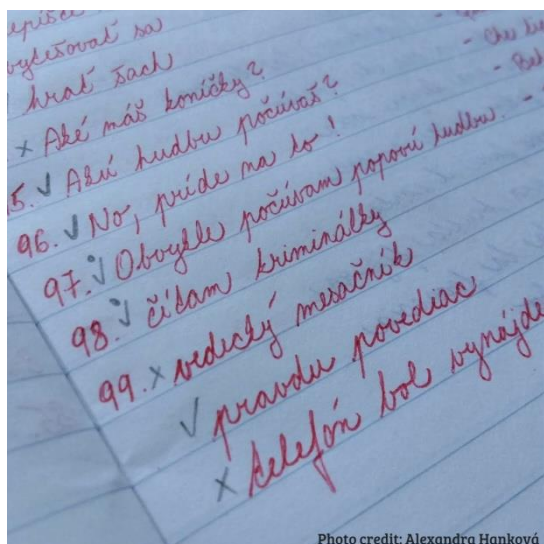 hrať šach
x Aké máš koníčky?
5. ✓ Akú hudbu počúvaš?
96. ✓ No, príde na to!
97. ✓ Obvykle počúvam popovú hudbu. -
98. ✓ čítam kriminálky
99. x vedecký mesačník
✓ pravdu povediac
x telefón bol vynájde
Photo credit: Alexandra Hanková